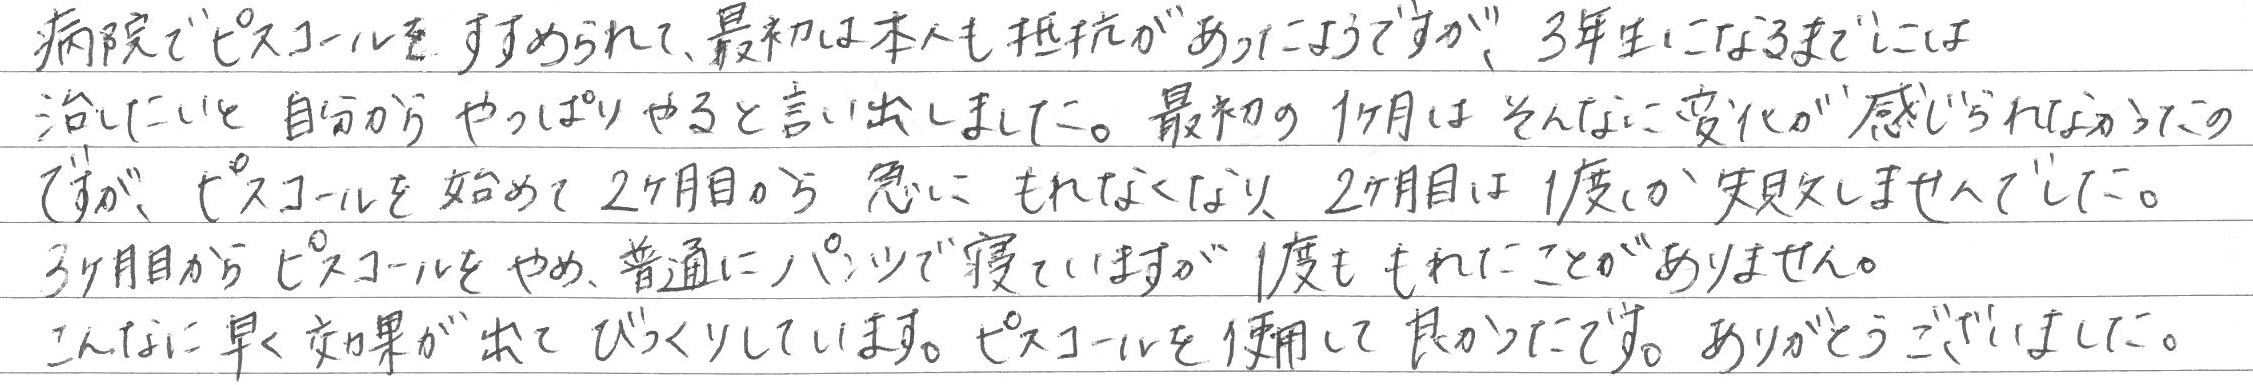 病院でピスコールをすすめられて、最初は本人も抵抗があったようですが、3年生になるまでには
治したいと自分からやっぱりやると言い出しました。最初の1ヶ月はそんなに変化が感じられなかったの
ですが、ピスコールを始めて2ヶ月目から急にもれなくなり、2ヶ月目は1度しか失敗しませんでした。
3ヶ月目からピスコールをやめ、普通にパンツで寝ていますが1度ももれたことがありません。
こんなに早く効果が出てびっくりしています。ピスコールを使用して良かったです。ありがとうございました。